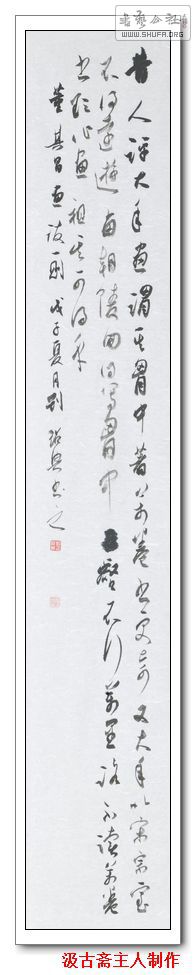 書藝公社
WWW.SHUFA.ORG
昔人評大年畫謂其胸中著千卷書更奇又大年以宋宗室
不得遠遊每朝陵回得寫胸中丘壑不行萬里路不讀萬卷
書欲作畫祖其可得乎
董其昌畫訣一則 戊子夏月劉 書之
汲古斋主人制作